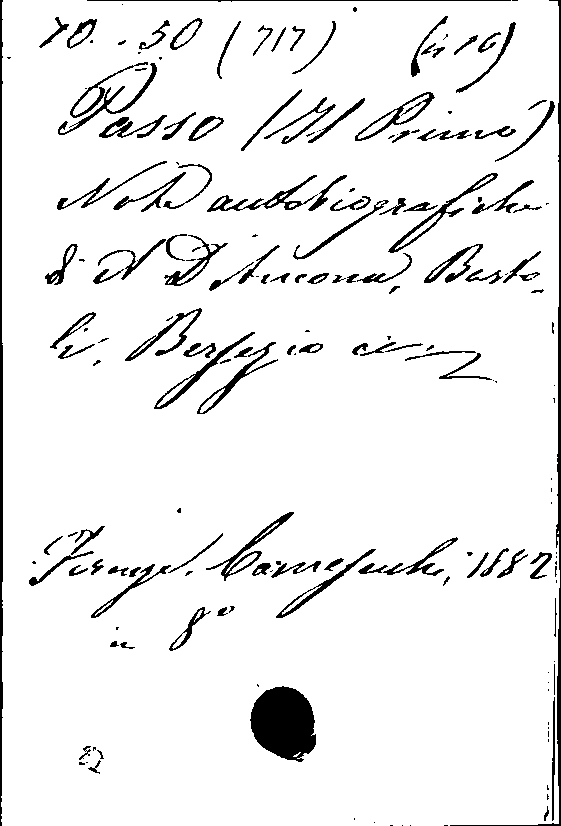 70. - 50 (717) (in 16)
Passo (Il Primo)
Note autobiografiche
di A D'Ancona, Barto-
li, Bersezio
Firenze. Carnesecchi, 1882
in 8°